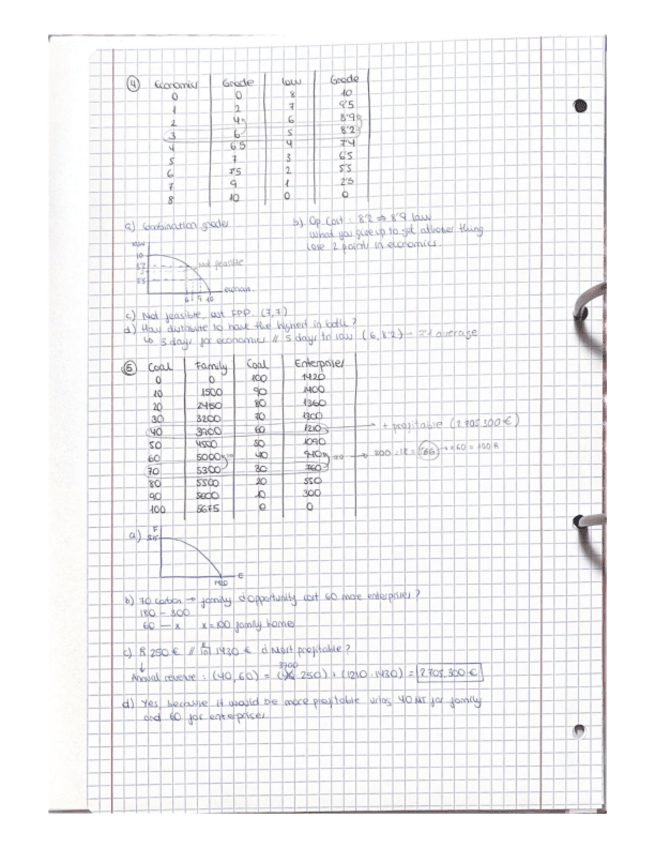 ④ Economics Grade Law Grade
0 0 8 10
1 2 7 9'5
2 4 6 8'9
3 6 5 8'2
4 6'5 4 7'4
5 7 3 6'5
6 7'5 2 5'5
7 9 1 2'5
8 10 0 0
a) Combination grades
b) Op. Cost: 8'2 → 8'9 law
What you give up to get another thing
lose 2 point in economics
not feasible
c) Not feasible, out FPP. (7,7)
d) How distribute to have the highest in both?
↳ 3 days for economics // 5 days to law (6, 8'2) → 7'1 average
⑤ Coal Family Coal Enterprises
0 0 100 1420
10 1500 90 1400
20 2450 80 1360
30 3200 70 1300
40 3700 60 1210 → + profitable (2.705.300€)
50 4500 50 1090
60 5000 40 940
70 5300 30 760
80 5500 20 550
90 5600 10 300
100 5675 0 0
a) F
E
b) 70 carbon → family ¿Opportunity cost 60 more enterprises?
180 - 300
60 - x x = 100 family home
c) 250€ // 1430€ ¿Most profitable?
↓
3700
Annual revenue: (40,60) = ( · 250) + (1210 · 1430) = 2.705.300€
d) Yes, because it would be more profitable using 40 MT for family
and 60 for enterprises.